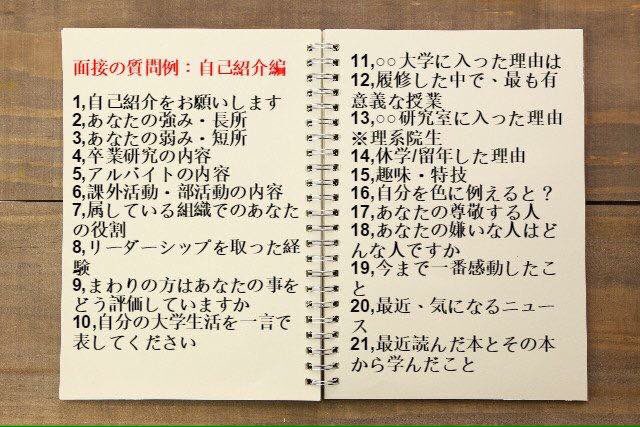 面接の質問例：自己紹介編
1,自己紹介をお願いします
2,あなたの強み・長所
3,あなたの弱み・短所
4,卒業研究の内容
5,アルバイトの内容
6,課外活動・部活動の内容
7,属している組織でのあなた
の役割
8,リーダーシップを取った経
験
9,まわりの方はあなたの事を
どう評価していますか
10,自分の大学生活を一言で
表してください
11,○○大学に入った理由は
12,履修した中で、最も有
意義な授業
13,○○研究室に入った理由
※理系院生
14,休学/留年した理由
15,趣味・特技
16,自分を色に例えると？
17,あなたの尊敬する人
18,あなたの嫌いな人はど
んな人ですか
19,今まで一番感動したこ
と
20,最近・気になるニュー
ス
21,最近読んだ本とその本
から学んだこと